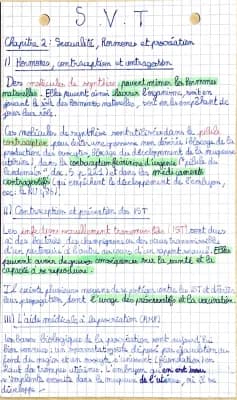 S.V.T
Chapitre 2: Sexualité, Hormones et procréation
I) Hormones, contraception et contragestion
Des molécules de synthèse peuvent mimer les hormones
naturelles. Elles peuvent ainsi leurrer l'organisme, soit en
jouant le rôle des hormones naturelles, soit en les empêchant de
jouer leur rôle.
Ces molécules de synthèse sont utilisées dans la pilule
contraceptive pour éviter une grossesse non désirée (blocage de la
production des ovocytes, blocage du développement de la muqueuse
utérine), dans la contraception féminine d'urgence ("pilule du
lendemain" doc. 5 p 221) et dans les médicaments
contragestifs (qui empêchent le développement de l'embryon,
ex: le RU 486).
II) Contraception et prévention des IST
Les infections sexuellement transmissibles (IST) sont dues
à des bactéries, des champignons ou des virus transmissibles
d'un partenaire à l'autre au cours d'un rapport sexuel. Elles
peuvent avoir de graves conséquences sur la santé et la
capacité à se reproduire.
Il existe plusieurs moyens de se protéger contre les IST et d'éviter
leur propagation, dont l'usage des préservatifs et la vaccination.
III) L'aide médicale à la procréation (AMP)
Les bases biologiques de la procréation sont aujourd'hui
bien connues: un spermatozoïde déposé par éjaculation au
fond du vagin et un ovocyte s'unissent (fécondation) en
haut des trompes utérines. L'embryon, qui en est issu
s'implante ensuite dans la muqueuse de l'utérus, où il se
développe.